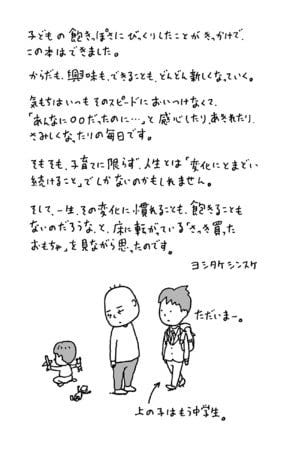 子どもの飽きっぽさにびっくりしたことがきっかけで、
この本はできました。
からだも、興味も、できることも、どんどん新しくなっていく。
気もちはいつもそのスピードにおいつけなくて、
「あんなに〇〇だったのに…」と感心したり、あきれたり、
さみしくなったりの毎日です。
そもそも、子育てに限らず、人生とは「変化にとまどい
続けること」でしかないのかもしれません。
そして、一生、その変化に慣れることも、飽きることも
ないのだろうな、と、床に転がっている「さっき買った
おもちゃ」を見ながら思ったのです。
ヨシタケシンスケ
ただいまー。
上の子はもう中学生。